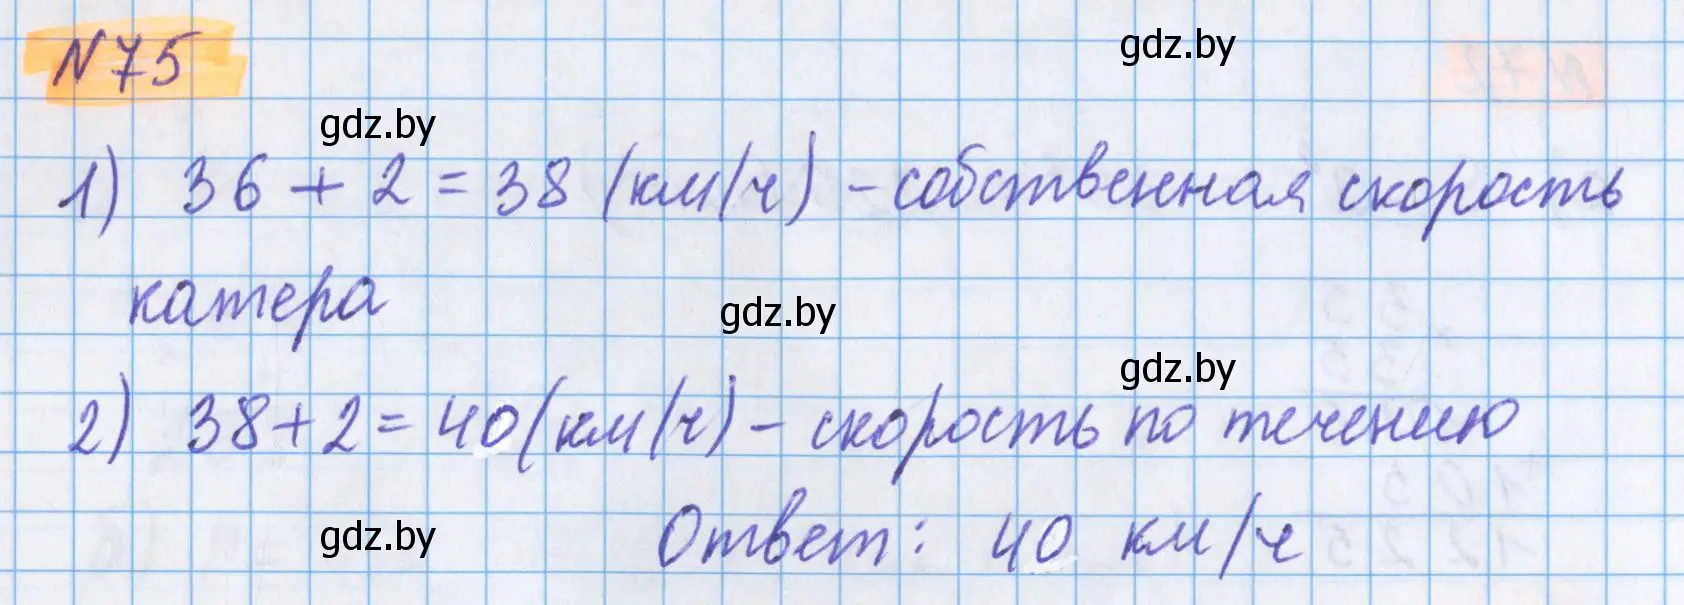 N75
gdz.by
gdz.by
1) 36 + 2 = 38 (км/ч) - собственная скорость
катера
gdz.by
gdz.by
2) 38 + 2 = 40 (км/ч) - скорость по течению
gdz.by
Ответ: 40 км/ч